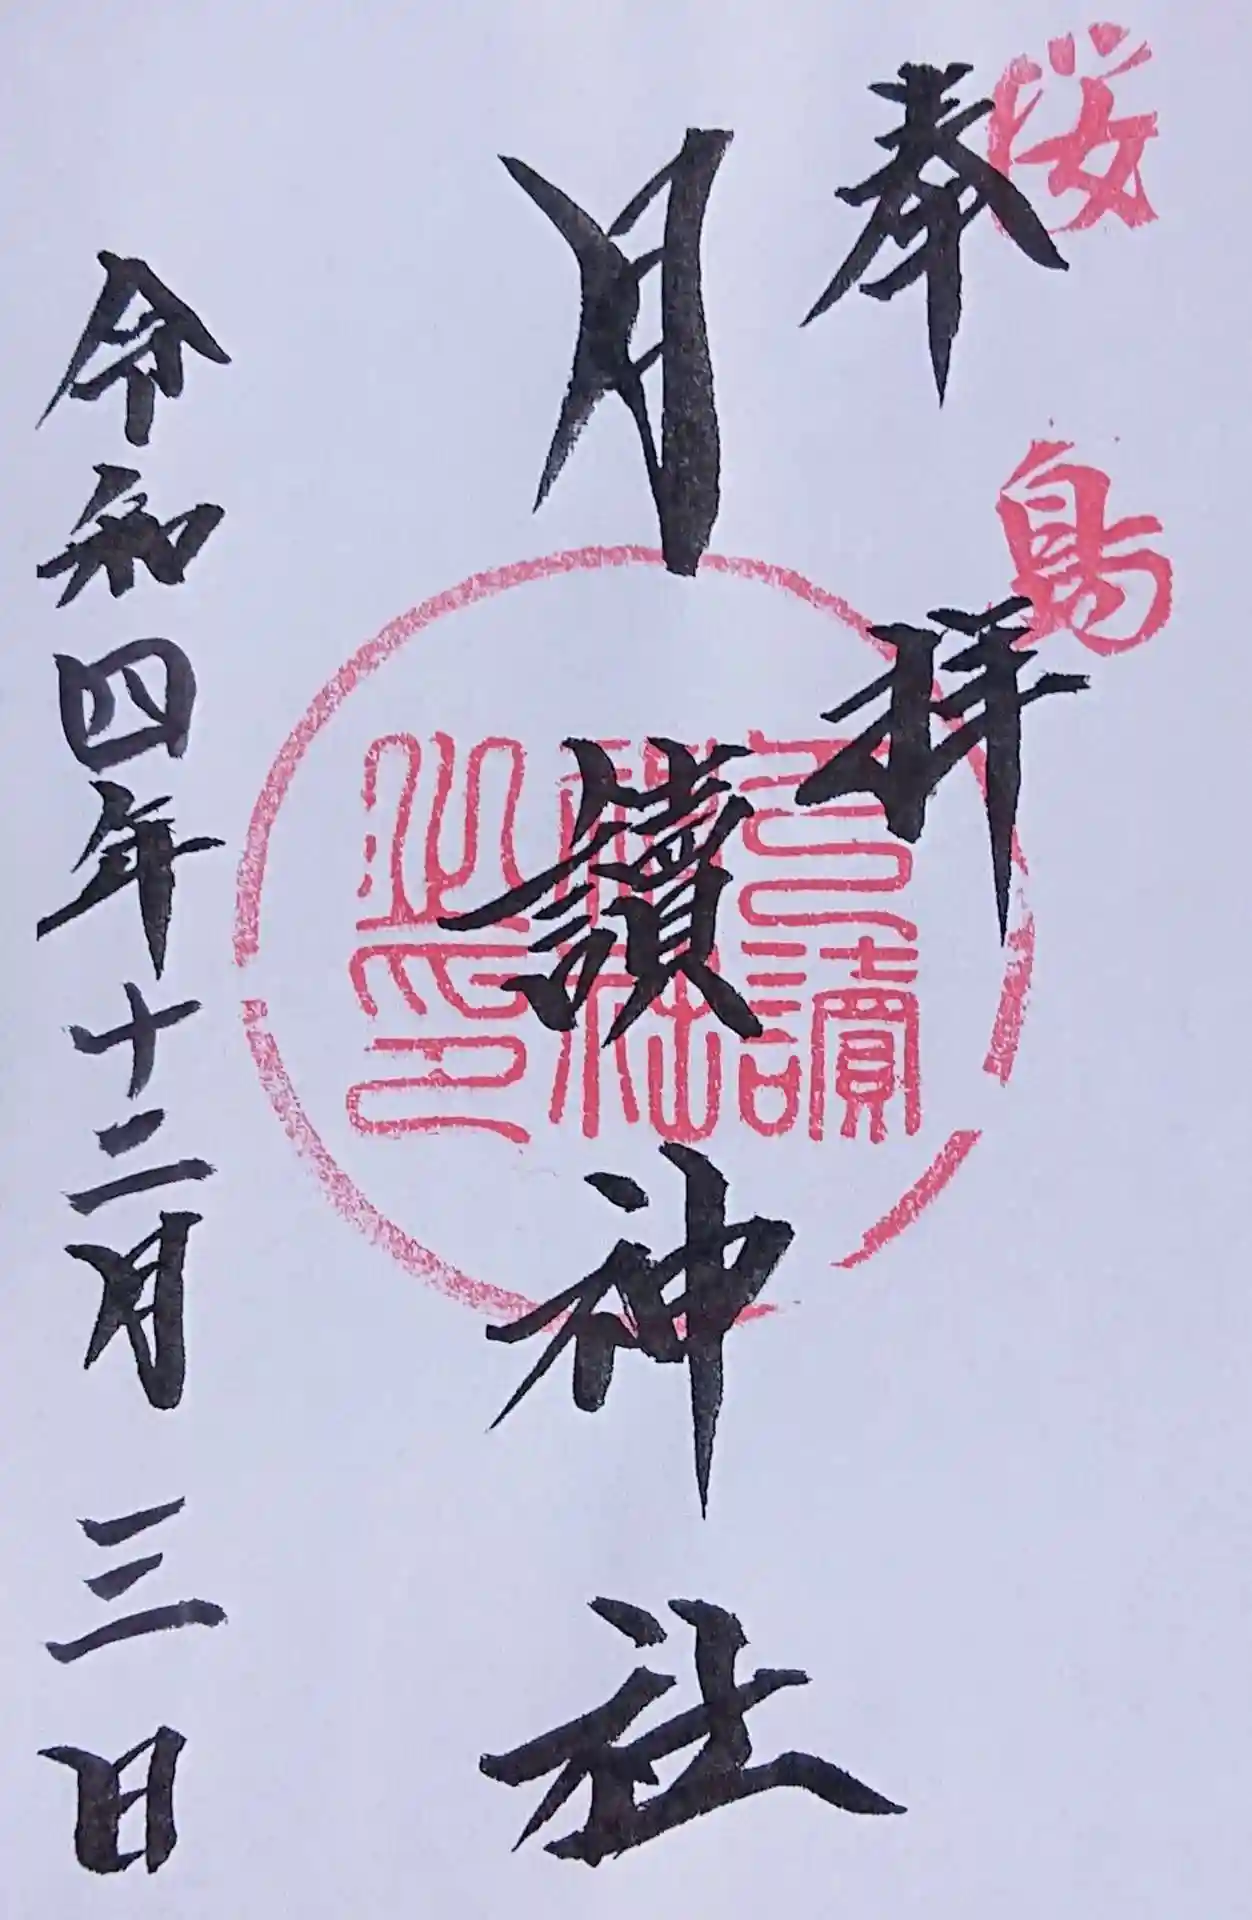 桜島
奉拝
月讀神社
月讀神社之印
令和四年十二月三日